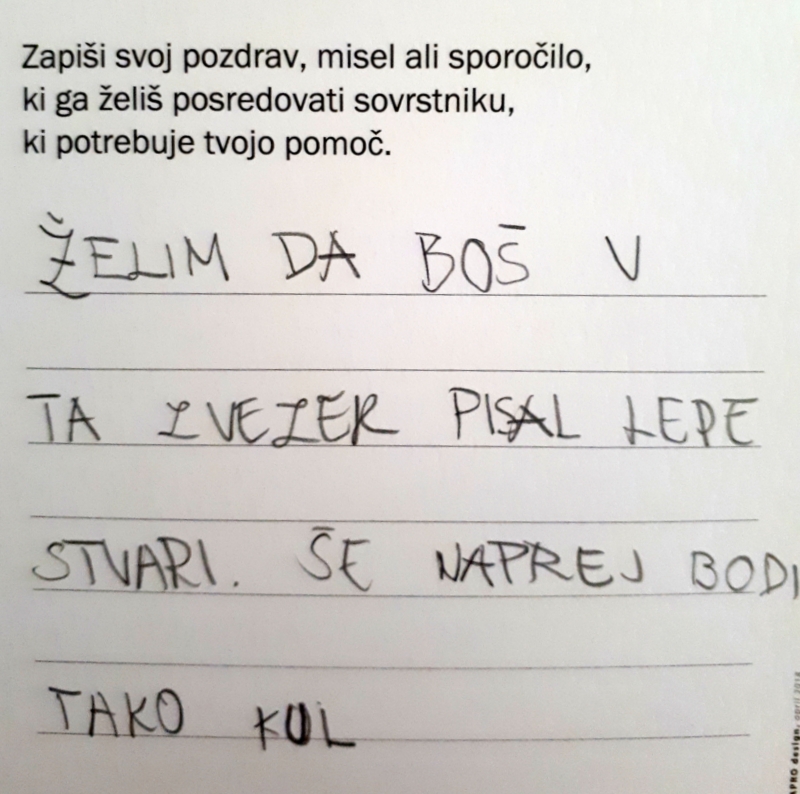 Zapiši svoj pozdrav, misel ali sporočilo,
ki ga želiš posredovati sovrstniku,
ki potrebuje tvojo pomoč.
ŽELIM DA BOŠ V
TA ZVEZEK PISAL LEPE
STVARI. ŠE NAPREJ BODI
TAKO KUL
APRO design, april 2014